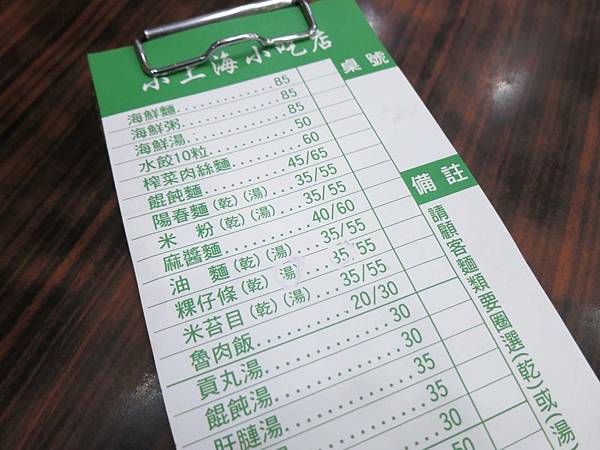 小上海小吃店
桌號
海鮮麵 85
海鮮粥 85
海鮮湯 85
水餃10粒 50
榨菜肉絲麵 60
餛飩麵 45/65
陽春麵(乾)(湯) 35/55
米粉(乾)(湯) 35/55
麻醬麵 40/60
油麵(乾)(湯) 35/55
粿仔條(乾)(湯) 35/55
米苔目(乾)(湯) 35/55
魯肉飯 20/30
貢丸湯 30
餛飩湯 30
肝膢湯 35
35
30
50
備註
請顧客麵類要圈選(乾)或(湯)